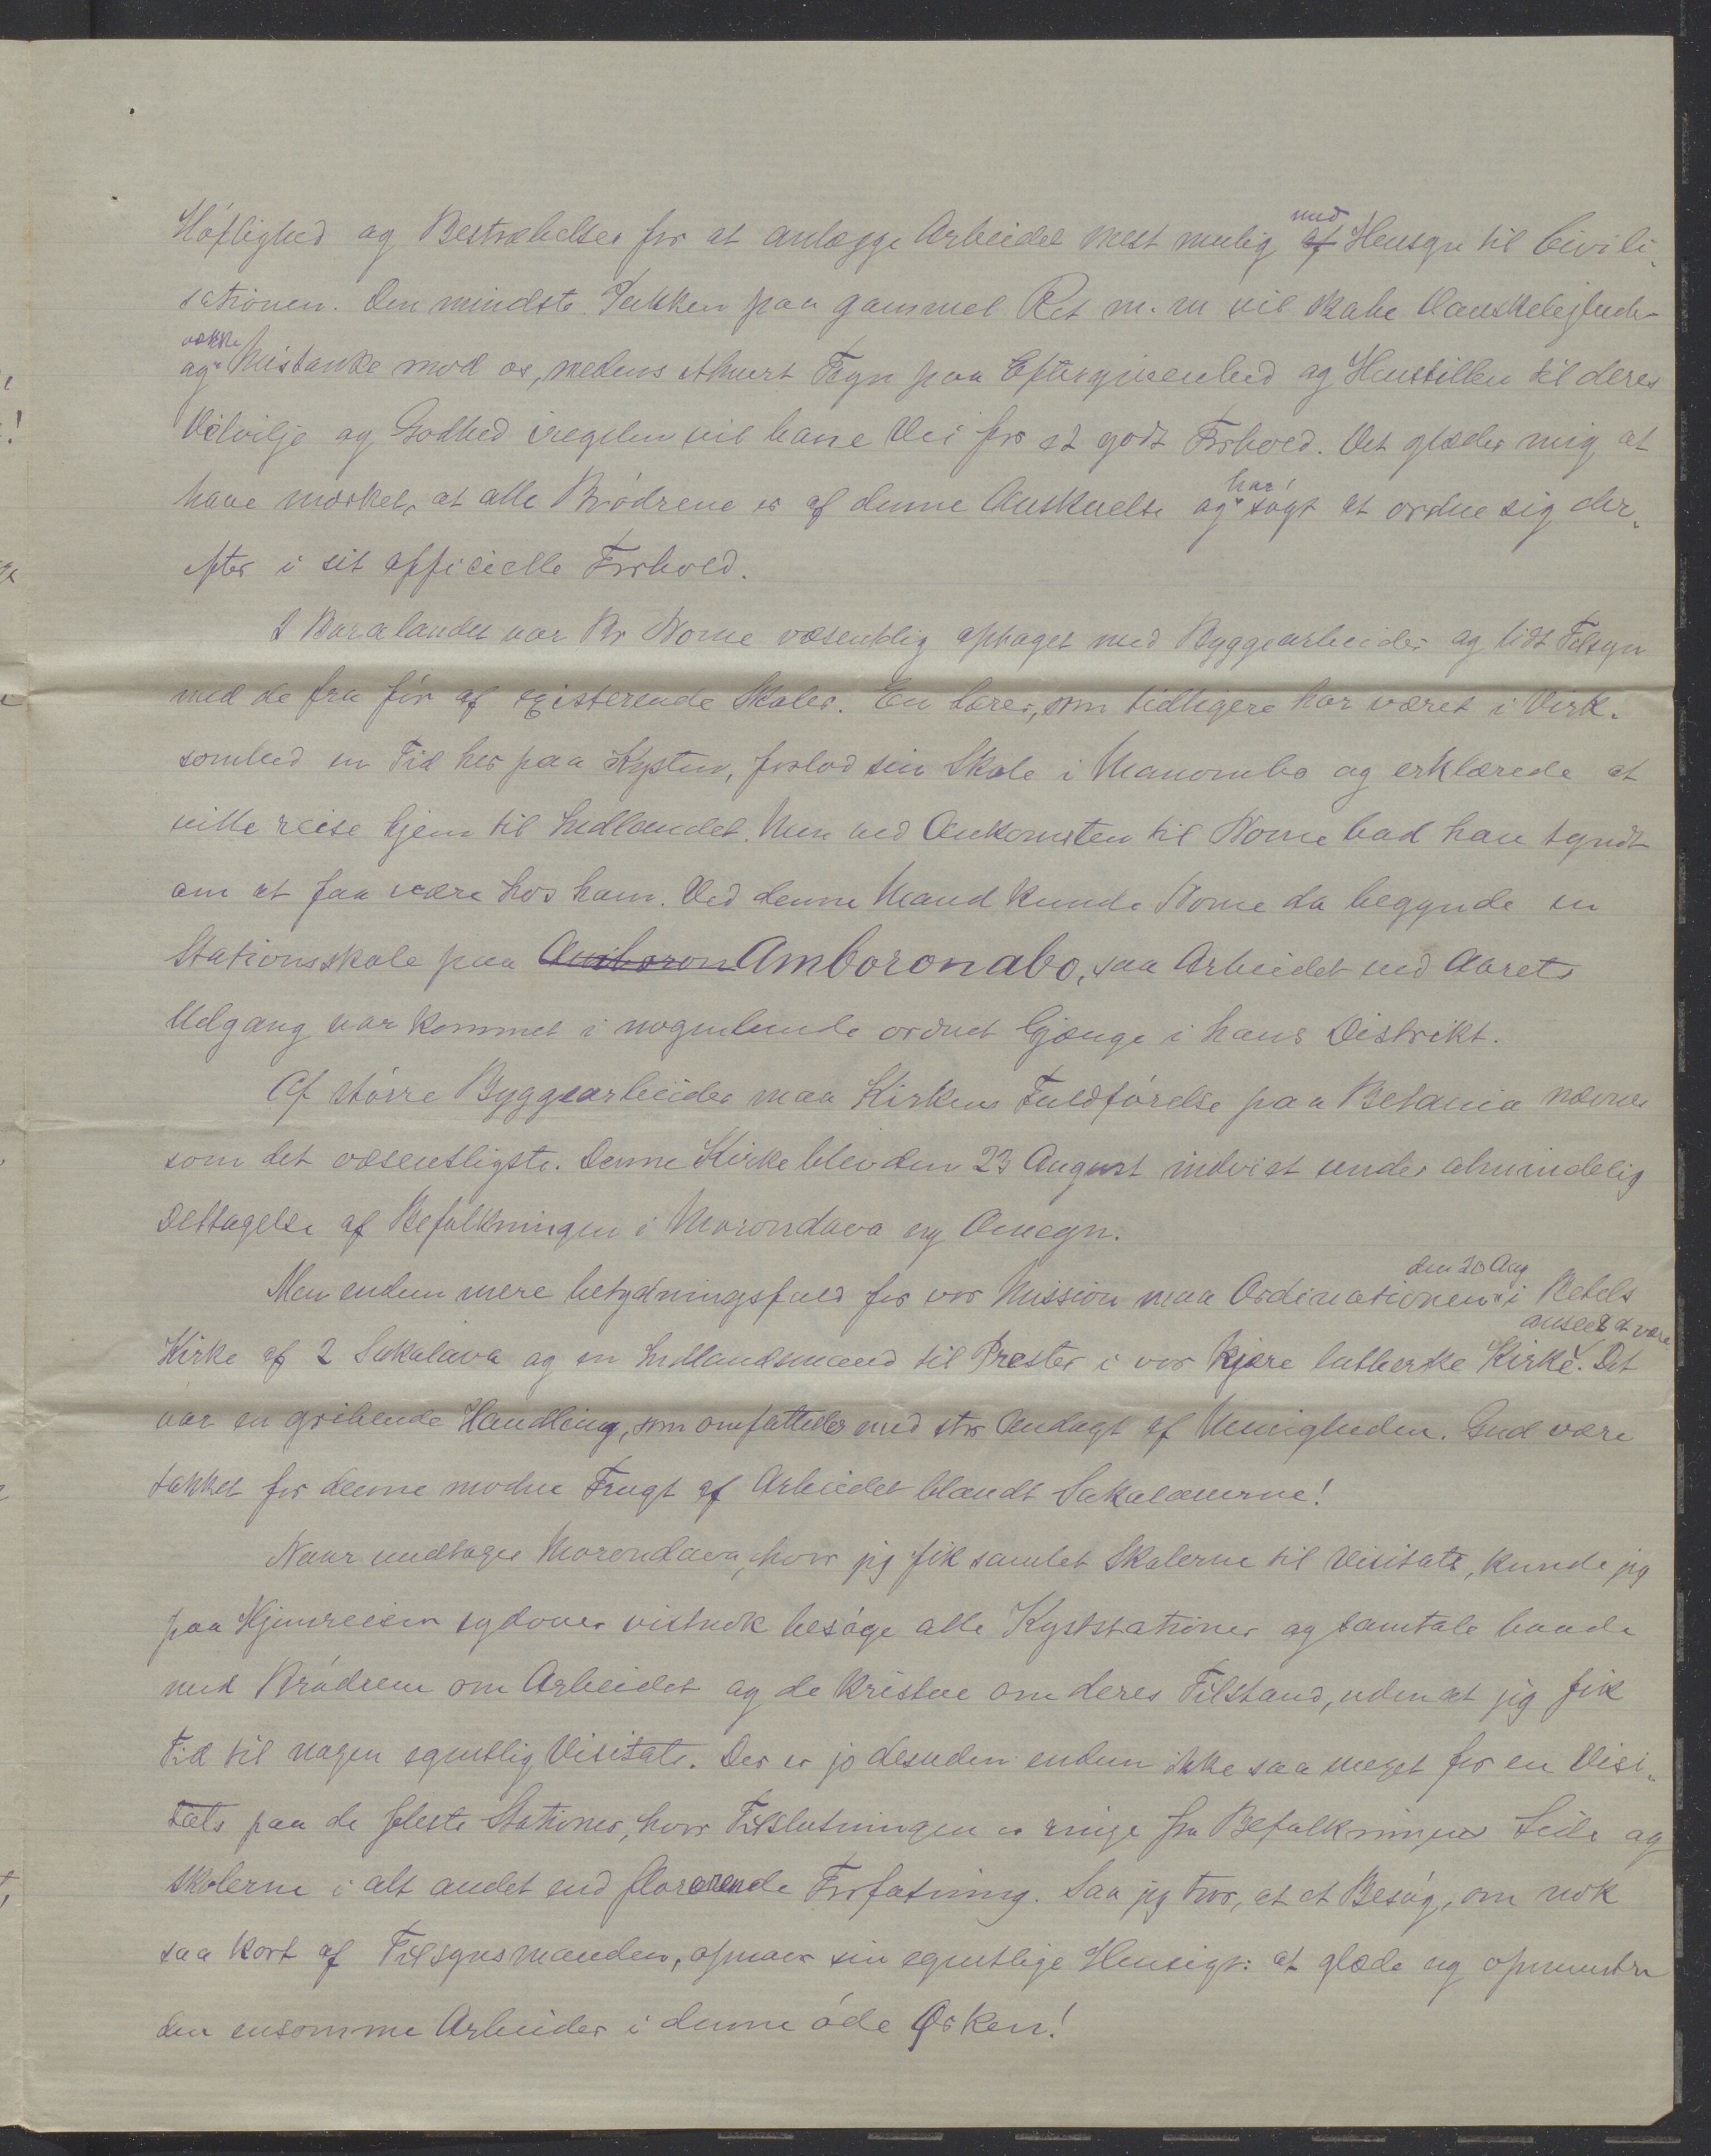 Höflighed og Bestræbelser for at anlægge Arbeidet mest mulig med Hensyn til Civili„
sationen. Den mindste Pukken paa gammel Ret m.m vil skabe Vanskeligheder
og vække Mistanke mod os, medens ethvert Tegn paa Eftergivenhed og Henstillen til deres
Velvilje og Godhed iregelen vil bane Vei for et godt Forhold. Det glæder mig at
have mærket, at alle Brödrene er af denne Anskuelse og har sögt at ordne sig der„
efter i sit officielle Forhold.
I Baralandet var Br Nome væsentlig optaget med Byggearbeider og lidt Tilsyn
med de fra för af existerende Skoler. En Lærer, som tidligere har været i Virk„
somhed en Tid her paa Kysten, forlod sin Skole i Manombo og erklærede at
ville reise hjem til Indlandet. Men ved Ankomsten til Nome bad han tyndt
om at faa være hos ham. Ved denne Mand kunde Nome da begynde en
Stationsskole paa Amboron Amboronabo, saa Arbeidet ved Aarets
Udgang var kommet i nogenlunde ordnet Gjænge i hans Distrikt.
Af större Byggearbeider maa Kirkens Fuldförelse paa Betania nævnes
som det væsentligste. Denne Kirke blev den 23 August indviet under almindelig
Deltagelse af Befolkningen i Morondava og Omegn.
Men endnu mere betydningsfuld for vor Mission maa Ordinationen den 20 Aug i Betels
Kirke af 2 Sakalava og en Indlandsmand til Prester i vor kjære lutherske Kirke ansees at være. Det
var en gribende Handling, som omfattedes med stor Andagt af Menigheden. Gud være
takket for denne modne Frugt af Arbeidet blandt Sakalaverne!
Naar undtages Morondava, hvor jeg fik samlet Skolerne til Visitats, kunde jeg
paa Hjemreisen sydover vistnok besöge alle Kyststationer og samtale baade
med Brödrene om Arbeidet og de kristne om deres Tilstand, uden at jeg fik
Tid til nogen egentlig Visitats. Der er jo desuden endnu ikke saa meget for en Visi„
tats paa de fleste Stationer, hvor Tilslutningen er ringe fra Befolkningens Side og
Skolerne i alt andet end florerende Forfatning. Saa jeg tror, at et Besög, om nok
saa kort af Tilsynsmanden, opnaar sin egentlige Hensigt: at glæde og opmuntre
den ensomme Arbeider i denne öde Örken!